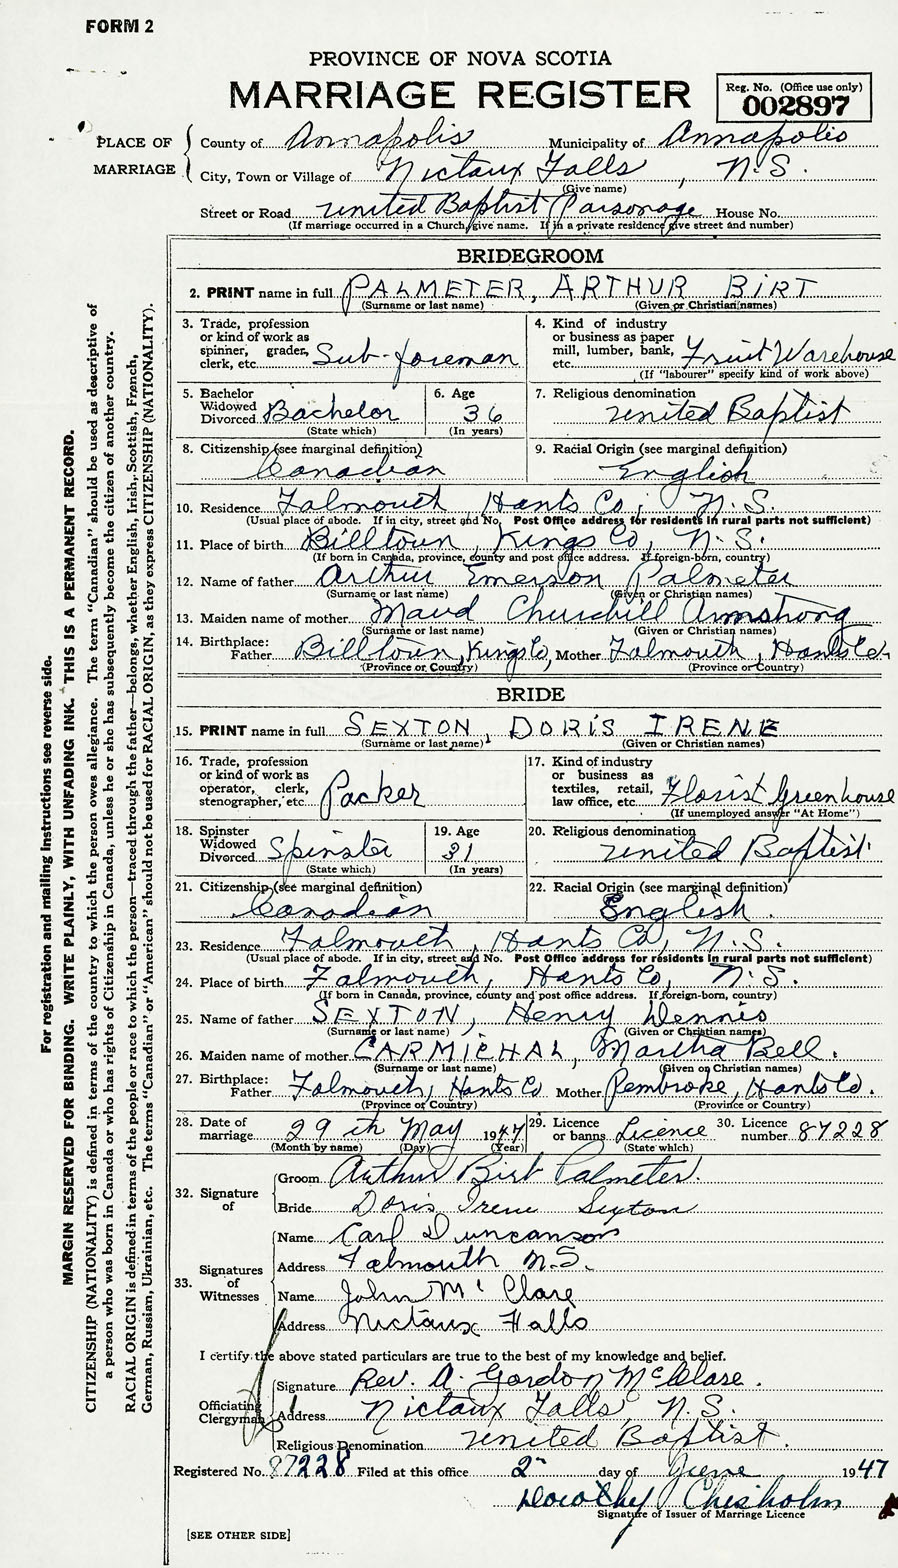 FORM 2
PROVINCE OF NOVA SCOTIA
MARRIAGE REGISTER
Reg. No. (Office use only)
002897
PLACE OF MARRIAGE
County of Annapolis Municipality of Annapolis
City, Town or Village of Nictaux Falls, N.S.
(Give name)
Street or Road United Baptist Parsonage House No.
(If marriage occurred in a Church, give name. If in a private residence give street and number)
BRIDEGROOM
2. PRINT name in full PALMETER, ARTHUR BIRT
(Surname or last name) (Given or Christian names)
3. Trade, profession or kind of work as spinner, grader, clerk, etc. Sub-foreman
4. Kind of industry or business as paper mill, lumber, bank, etc. Fruit Warehouse
(If "labourer" specify kind of work above)
5. Bachelor Widowed Divorced Bachelor
(State which)
6. Age 36
(In years)
7. Religious denomination United Baptist
8. Citizenship (see marginal definition) Canadian
9. Racial Origin (see marginal definition) English
10. Residence Falmouth, Hants Co., N.S.
(Usual place of abode. If in city, street and No. Post Office address for residents in rural parts not sufficient)
11. Place of birth Billtown, Kings Co, N.S.
(If born in Canada, province, county and post office address. If foreign-born, country)
12. Name of father Arthur Emerson Palmeter
(Surname or last name) (Given or Christian names)
13. Maiden name of mother Maud Churchill Armstrong
(Surname or last name) (Given or Christian names)
14. Birthplace: Father Billtown, Kings Co, Mother Falmouth, Hants Co.
(Province or Country) (Province or Country)
BRIDE
15. PRINT name in full SEXTON, DORIS IRENE
(Surname or last name) (Given or Christian names)
16. Trade, profession or kind of work as operator, clerk, stenographer, etc. Packer
17. Kind of industry or business as textiles, retail, law office, etc. Florist Greenhouse
(If unemployed answer "At Home")
18. Spinster Widowed Divorced Spinster
(State which)
19. Age 31
(In years)
20. Religious denomination United Baptist
21. Citizenship (see marginal definition) Canadian
22. Racial Origin (see marginal definition) English.
23. Residence Falmouth, Hants Co, N.S.
(Usual place of abode. If in city, street and No. Post Office address for residents in rural parts not sufficient)
24. Place of birth Falmouth, Hants Co, N.S.
(If born in Canada, province, county and post office address. If foreign-born, country)
25. Name of father SEXTON, Henry Dennis
(Surname or last name) (Given or Christian names)
26. Maiden name of mother CARMICHAL, Martha Bell.
(Surname or last name) (Given or Christian names)
27. Birthplace: Father Falmouth, Hants Co Mother Pembroke, Hants Co.
(Province or Country) (Province or Country)
28. Date of marriage 29th May 1947
(Month by name) (Day) (Year)
29. Licence or banns Licence
(State which)
30. Licence number 87228
32. Signature of
Groom Arthur Birt Palmeter.
Bride Doris Irene Sexton
33. Signatures of Witnesses
Name Carl Duncanson
Address Falmouth N.S.
Name John McClare
Address Nictaux Falls
I certify the above stated particulars are true to the best of my knowledge and belief.
Officiating Clergyman
Signature Rev. A. Gordon McClare.
Address Nictaux Falls, N.S.
Religious Denomination United Baptist.
Registered No. 87228 Filed at this office 2nd day of June 1947
Dorothy Chisholm
Signature of Issuer of Marriage Licence
[SEE OTHER SIDE]
For registration and mailing instructions see reverse side.
MARGIN RESERVED FOR BINDING. WRITE PLAINLY, WITH UNFADING INK. THIS IS A PERMANENT RECORD.
CITIZENSHIP (NATIONALITY) is defined in terms of the country to which the person owes allegiance. The term "Canadian" should be used as descriptive of
a person who was born in Canada or who has rights of Citizenship in Canada, unless he or she has subsequently become the citizen of another country.
RACIAL ORIGIN is defined in terms of the people or race to which the person—traced through the father—belongs, whether English, Irish, Scottish, French,
German, Russian, Ukrainian, etc. The terms "Canadian" or "American" should not be used for RACIAL ORIGIN, as they express CITIZENSHIP (NATIONALITY).